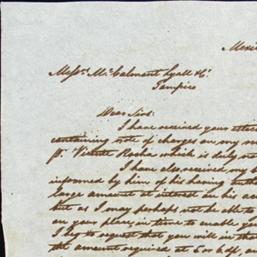 Mexi
Mess.rs McCalmont Lyall & Co.
Tampico
Dear Sirs:
I have received your
containing note of charges on my
p. Vicente Rocha which is duly no
I have also received my
informed by him of his having
large amount at interest on his acc
But as I may perhaps not be able to
on your place, in time to enable you
I beg to request that you will in the
the amount required at 5 or 6 %, on